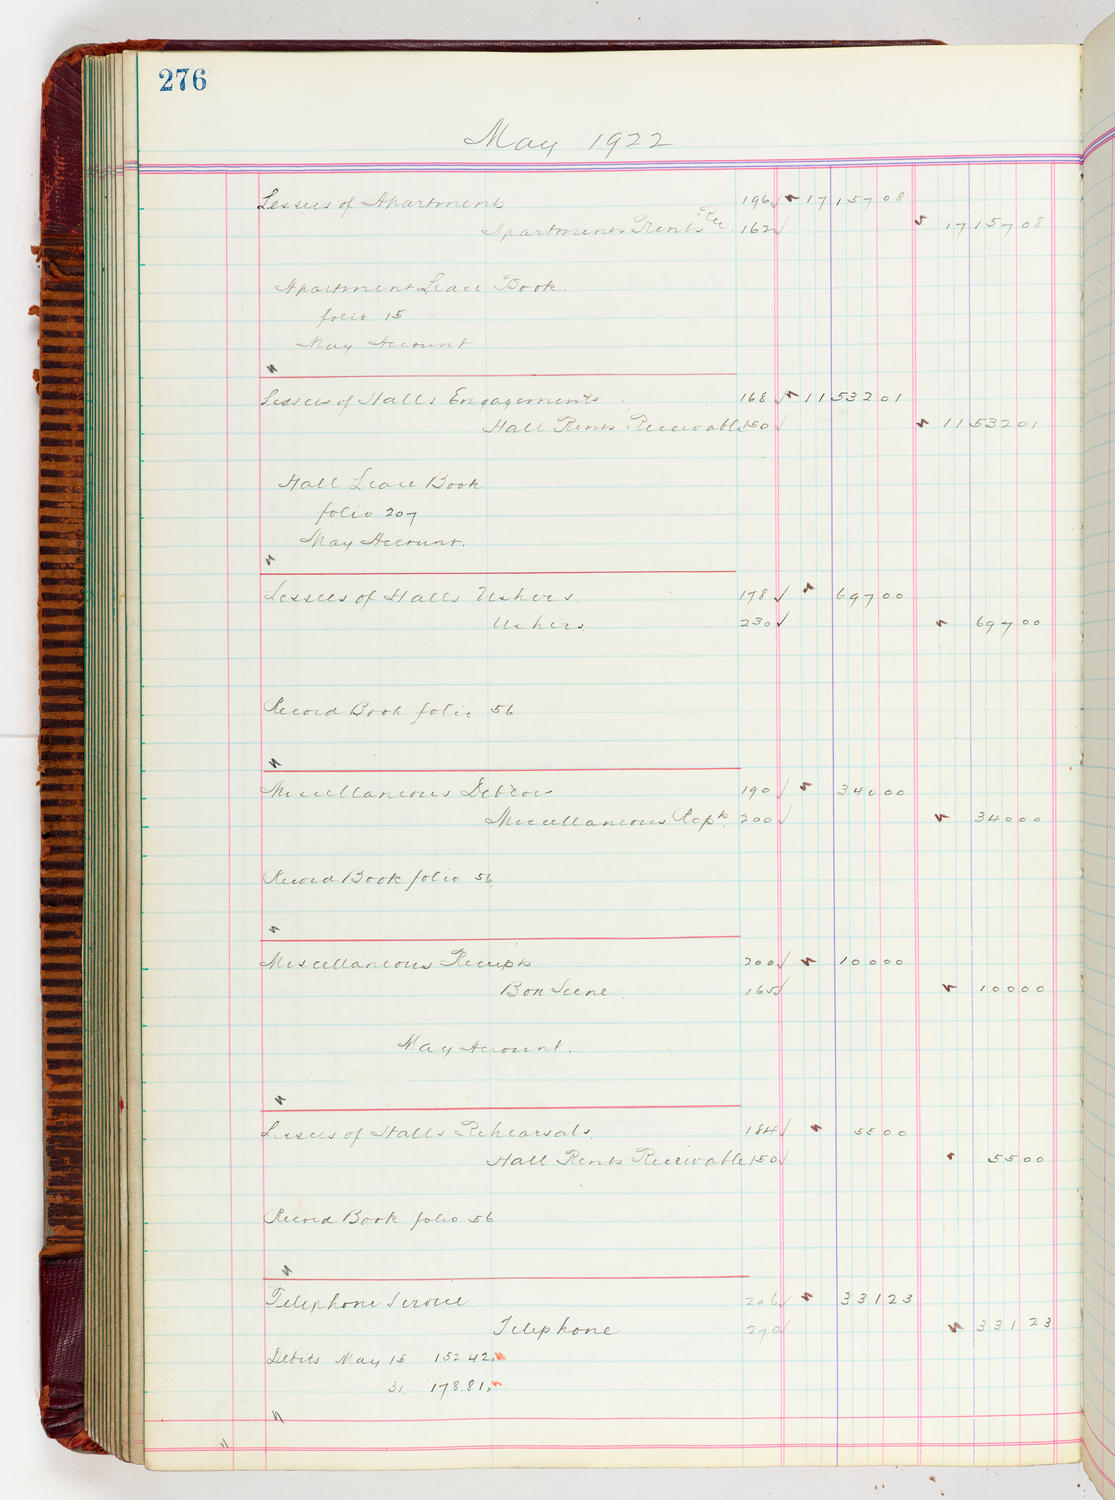 276
May 1922
Lessees of Apartments 196 17157 08
Apartments Rents Rec 162 17157 08
Apartment Lease Book.
folio 15
May Account
Lessees of Halls Engagements 168 11532 01
Hall Rents Receivable 150 11532 01
Hall Lease Book
folio 207
May Account.
Lessees of Halls Ushers 178 697 00
Ushers 230 697 00
Record Book folio 56
Miscellaneous Debtors 190 340 00
Miscellaneous Rcpts. 200 340 00
Record Book folio 56
Miscellaneous Receipts 200 100 00
Box Scene 165 100 00
May Account.
Lessees of Halls Rehearsals 184 55 00
Hall Rents Receivable 150 55 00
Record Book folio 56
Telephone Service 206 331 23
Telephone 270 331 23
Debits May 15 152 42
31. 178.81